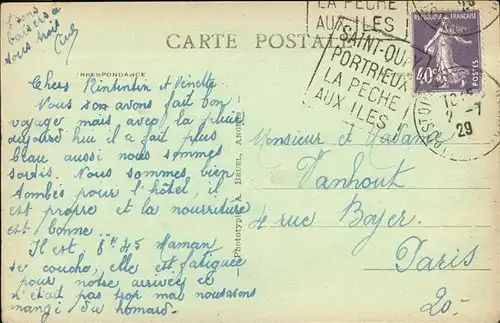 bons
baisers à
vous trois
CARTE POSTALE
CORRESPONDANCE
LA PECHE
AUX ILES
SAINT-QUAY
PORTRIEUX
LA PECHE
AUX ILES
REPUBLIQUE FRANÇAISE
40c
POSTES
2 -7
29
Chers Rintintin et Nénette
Nous avons fait bon
voyage mais avec la pluie
aujourd hui il a fait plus
beau aussi nous sommes
sortis. Nous sommes bien
tombés pour l'hôtel, il
est propre et la nourriture
est bonne
Il est 8h 45 Maman
se couche, elle est fatiguée
pour notre arrivée ce
n'était pas trop mal nous avons
mangé du homard.
Phototypie A. BRUEL, ANGERS
Monsieur et Madame
Vanhout
4 rue Boyer
Paris
20-